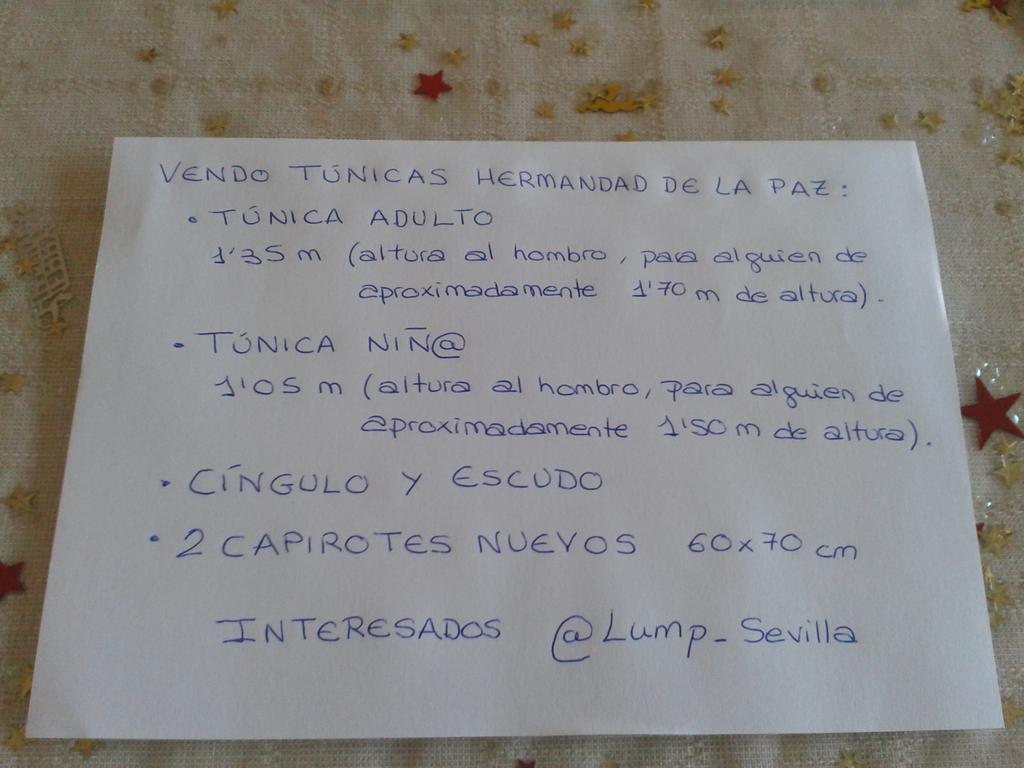 VENDO TÚNICAS HERMANDAD DE LA PAZ:
• TÚNICA ADULTO
1'35 m (altura al hombro, para alguien de
aproximadamente 1'70 m de altura).
• TÚNICA NIÑ@
1'05 m (altura al hombro, para alguien de
aproximadamente 1'50 m de altura).
• CÍNGULO Y ESCUDO
• 2 CAPIROTES NUEVOS 60x70 cm
INTERESADOS @Lump_Sevilla